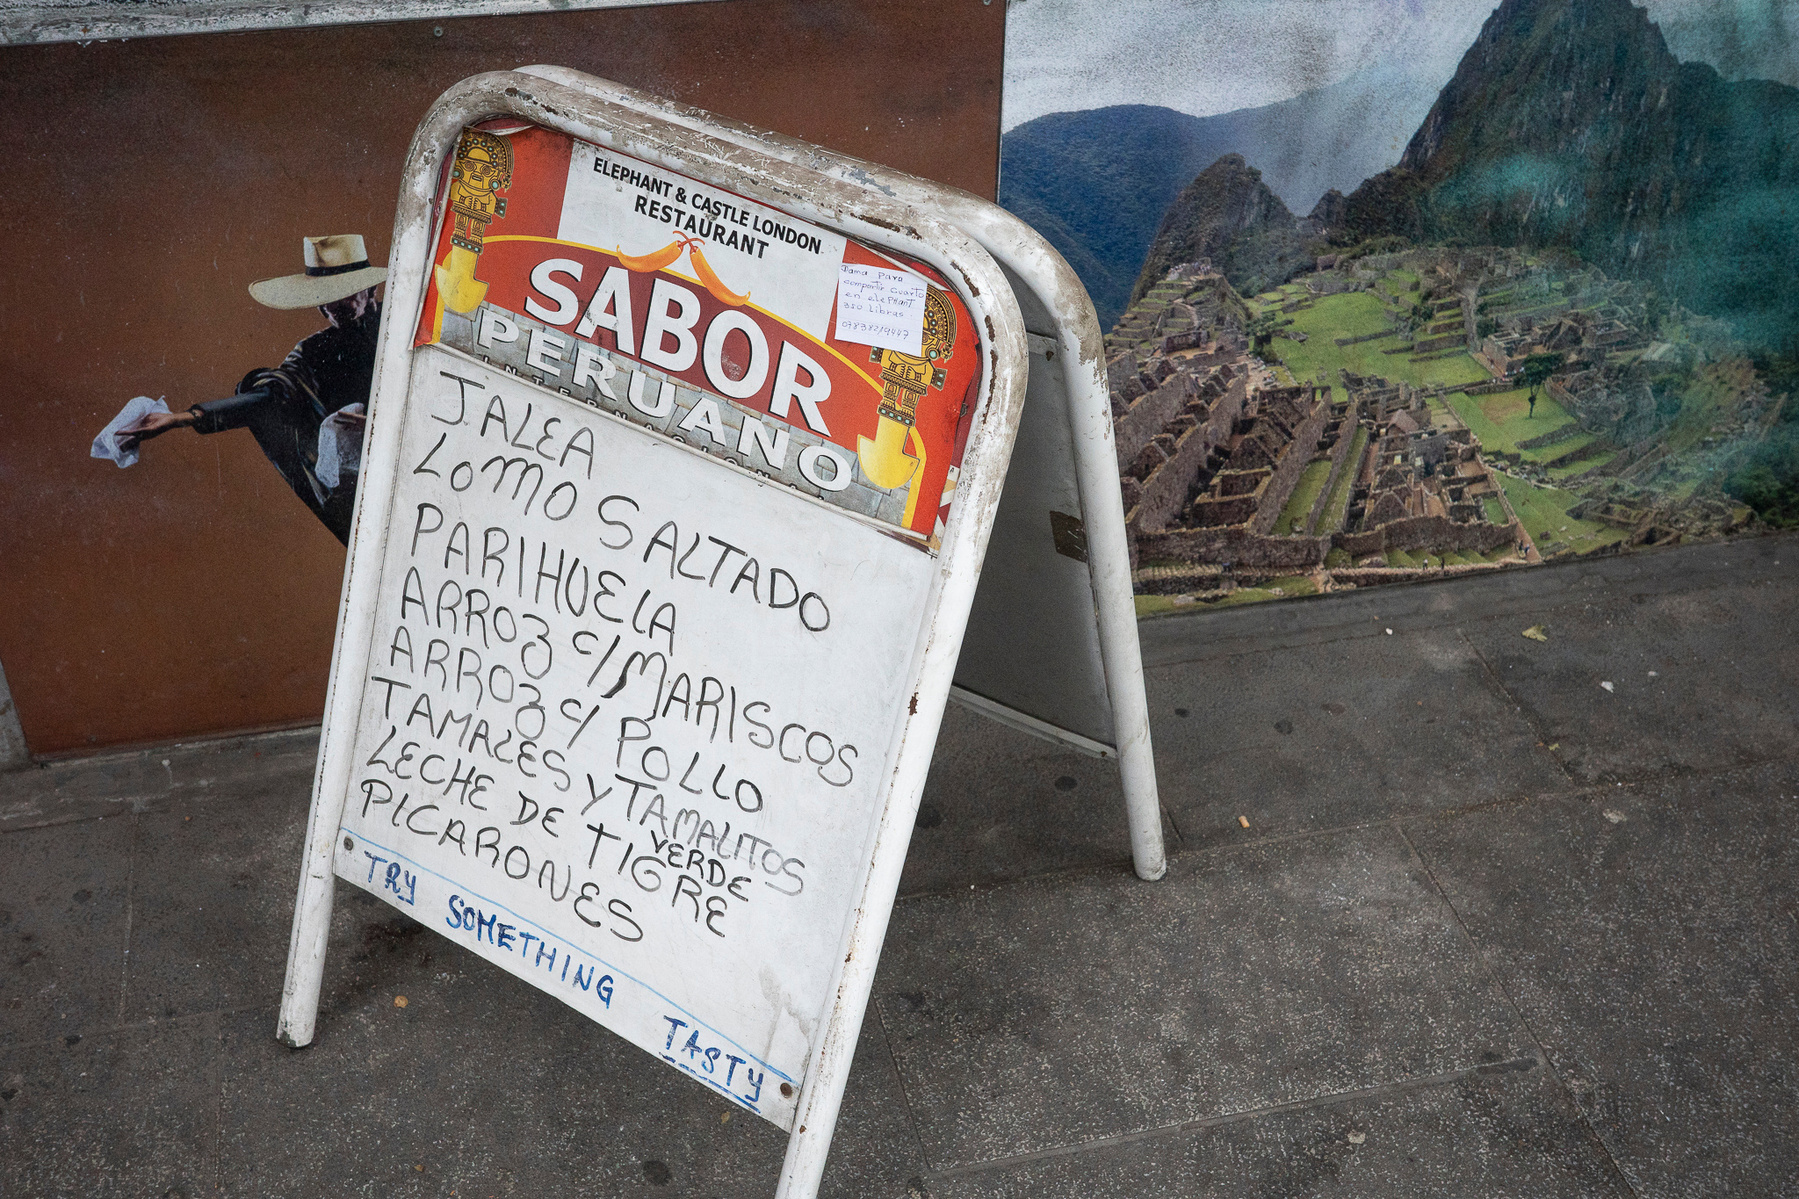 ELEPHANT & CASTLE LONDON
RESTAURANT
SABOR
PERUANO
INTERNACIONAL
Dama para
compartir cuarto
en elepHant
350 Libras.
JALEA
LOMO SALTADO
PARIHUELA
ARROZ C/ MARISCOS
ARROZ C/ POLLO
TAMALES Y TAMALITOS
VERDE
LECHE DE TIGRE
PICARONES
TRY SOMETHING TASTY